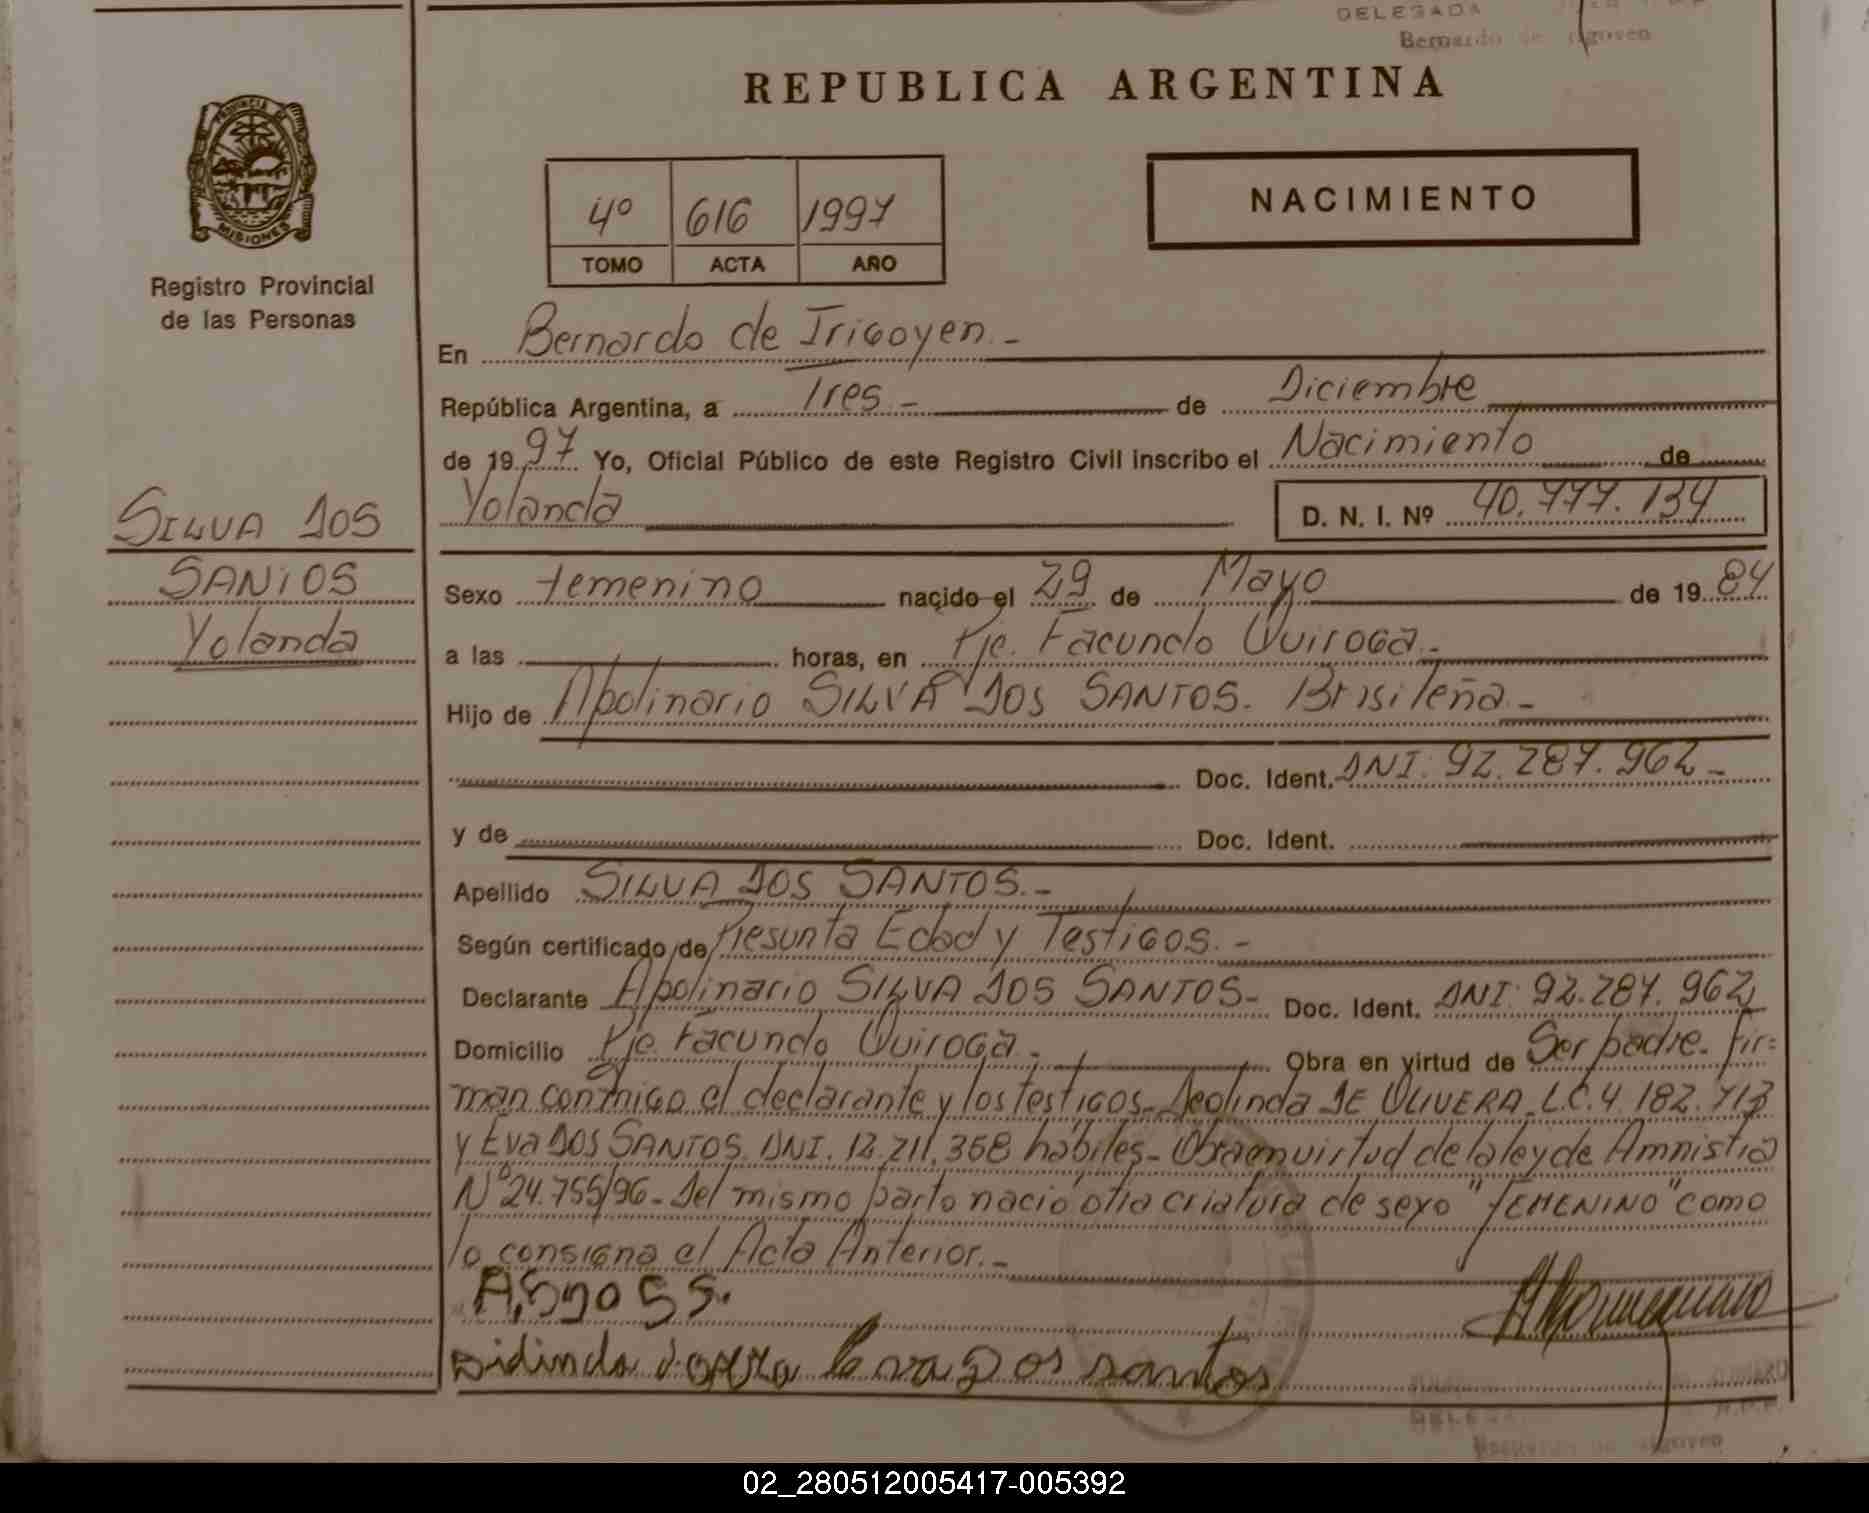 DELEGADA
Bernardo de Irigoyen
REPUBLICA ARGENTINA
PROVINCIA DE
MISIONES
Registro Provincial
de las Personas
4º 616 1997
TOMO ACTA AÑO
NACIMIENTO
En Bernardo de Irigoyen.-
República Argentina, a Tres.- de Diciembre
de 1997 Yo, Oficial Público de este Registro Civil inscribo el Nacimiento de
Yolanda D. N. I. Nº 40.777.134
SILVA DOS
SANTOS
Yolanda
Sexo femenino nacido el 29 de Mayo de 1984
a las horas, en Pje. Facundo Quiroga.-
Hijo de Apolinario SILVA DOS SANTOS. Brasileña.-
Doc. Ident. DNI. 92.287.962.-
y de Doc. Ident.
Apellido SILVA DOS SANTOS.-
Según certificado de Presunta Edad y Testigos.-
Declarante Apolinario SILVA DOS SANTOS.- Doc. Ident. DNI. 92.287.962
Domicilio Pje. Facundo Quiroga.- Obra en virtud de Ser padre. Fir=
man conmigo el declarante y los testigos. Deolinda DE OLIVERA. L.C.4.182.713
y Eva DOS SANTOS. DNI. 12.711.368 hábiles.- Obra en virtud de la ley de Amnistia
Nº 24.755/96.- Del mismo parto nació otra criatura de sexo "FEMENINO" como
lo consigna el Acta Anterior.-
Eva Dos santos
DELEGADA
Bernardo de Irigoyen
02_280512005417-005392